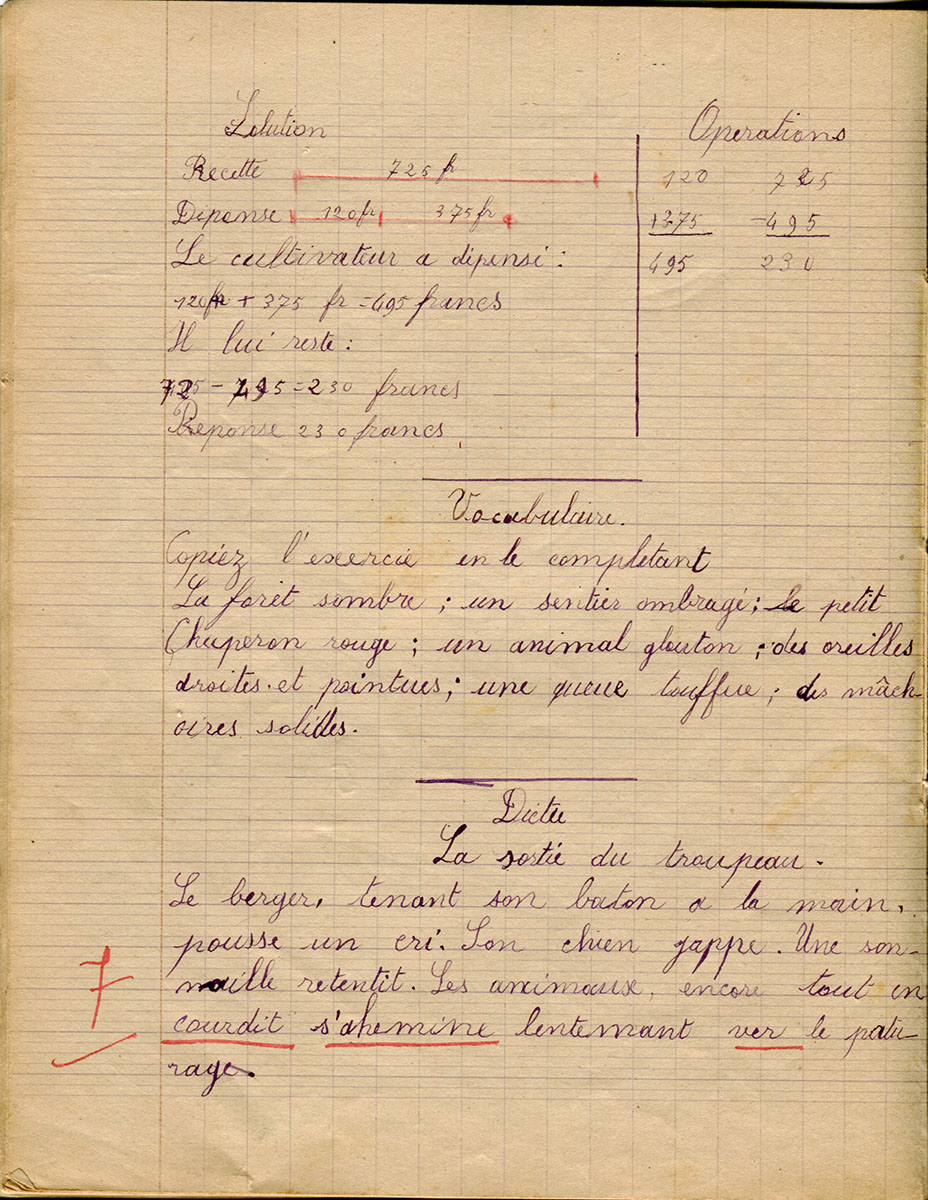 Solution
Operations
Recette 725 fr
Dépense 120 fr 375 fr
120 725
+375 -495
495 230
Le cultivateur a dépensé :
120fr + 375 fr = 495 francs
Il lui reste :
725 - 495 = 230 francs
Reponse 230 francs
Vocabulaire.
Copiez l'exercie en le completant
La forêt sombre ; un sentier ombragé ; le petit
Chaperon rouge ; un animal glouton ; des oreilles
droites et pointues ; une queue touffue ; des mâch-
oires solides.
Dictée
La sortie du troupeau.
Le berger, tenant son baton a la main,
pousse un cri. Son chien jappe. Une son-
naille retentit. Les animaux, encore tout en
courdit s'ahemine lentemant ver le patu-
rage.
7